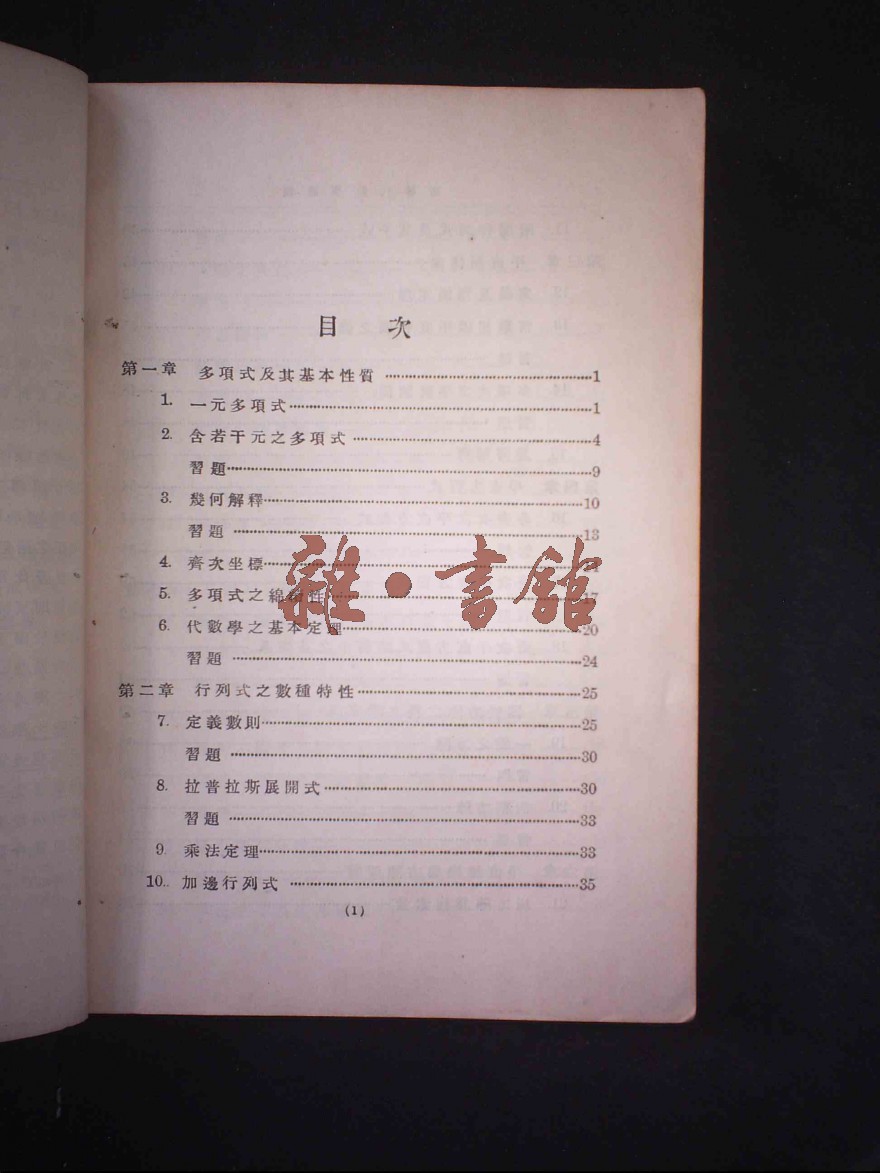 目 次
第一章 多項式及其基本性質 ……1
1. 一元多項式……1
2. 含若干元之多項式……4
習題……9
3. 幾何解釋……10
習題……13
4. 齊次坐標……
5. 多項式之綿續性……17
6. 代數學之基本定理……20
習題……24
第二章 行列式之數種特性……25
7. 定義數則……25
習題……30
8. 拉普拉斯展開式……30
習題……33
9. 乘法定理……33
10.. 加邊行列式……35
(1)
雜·書館